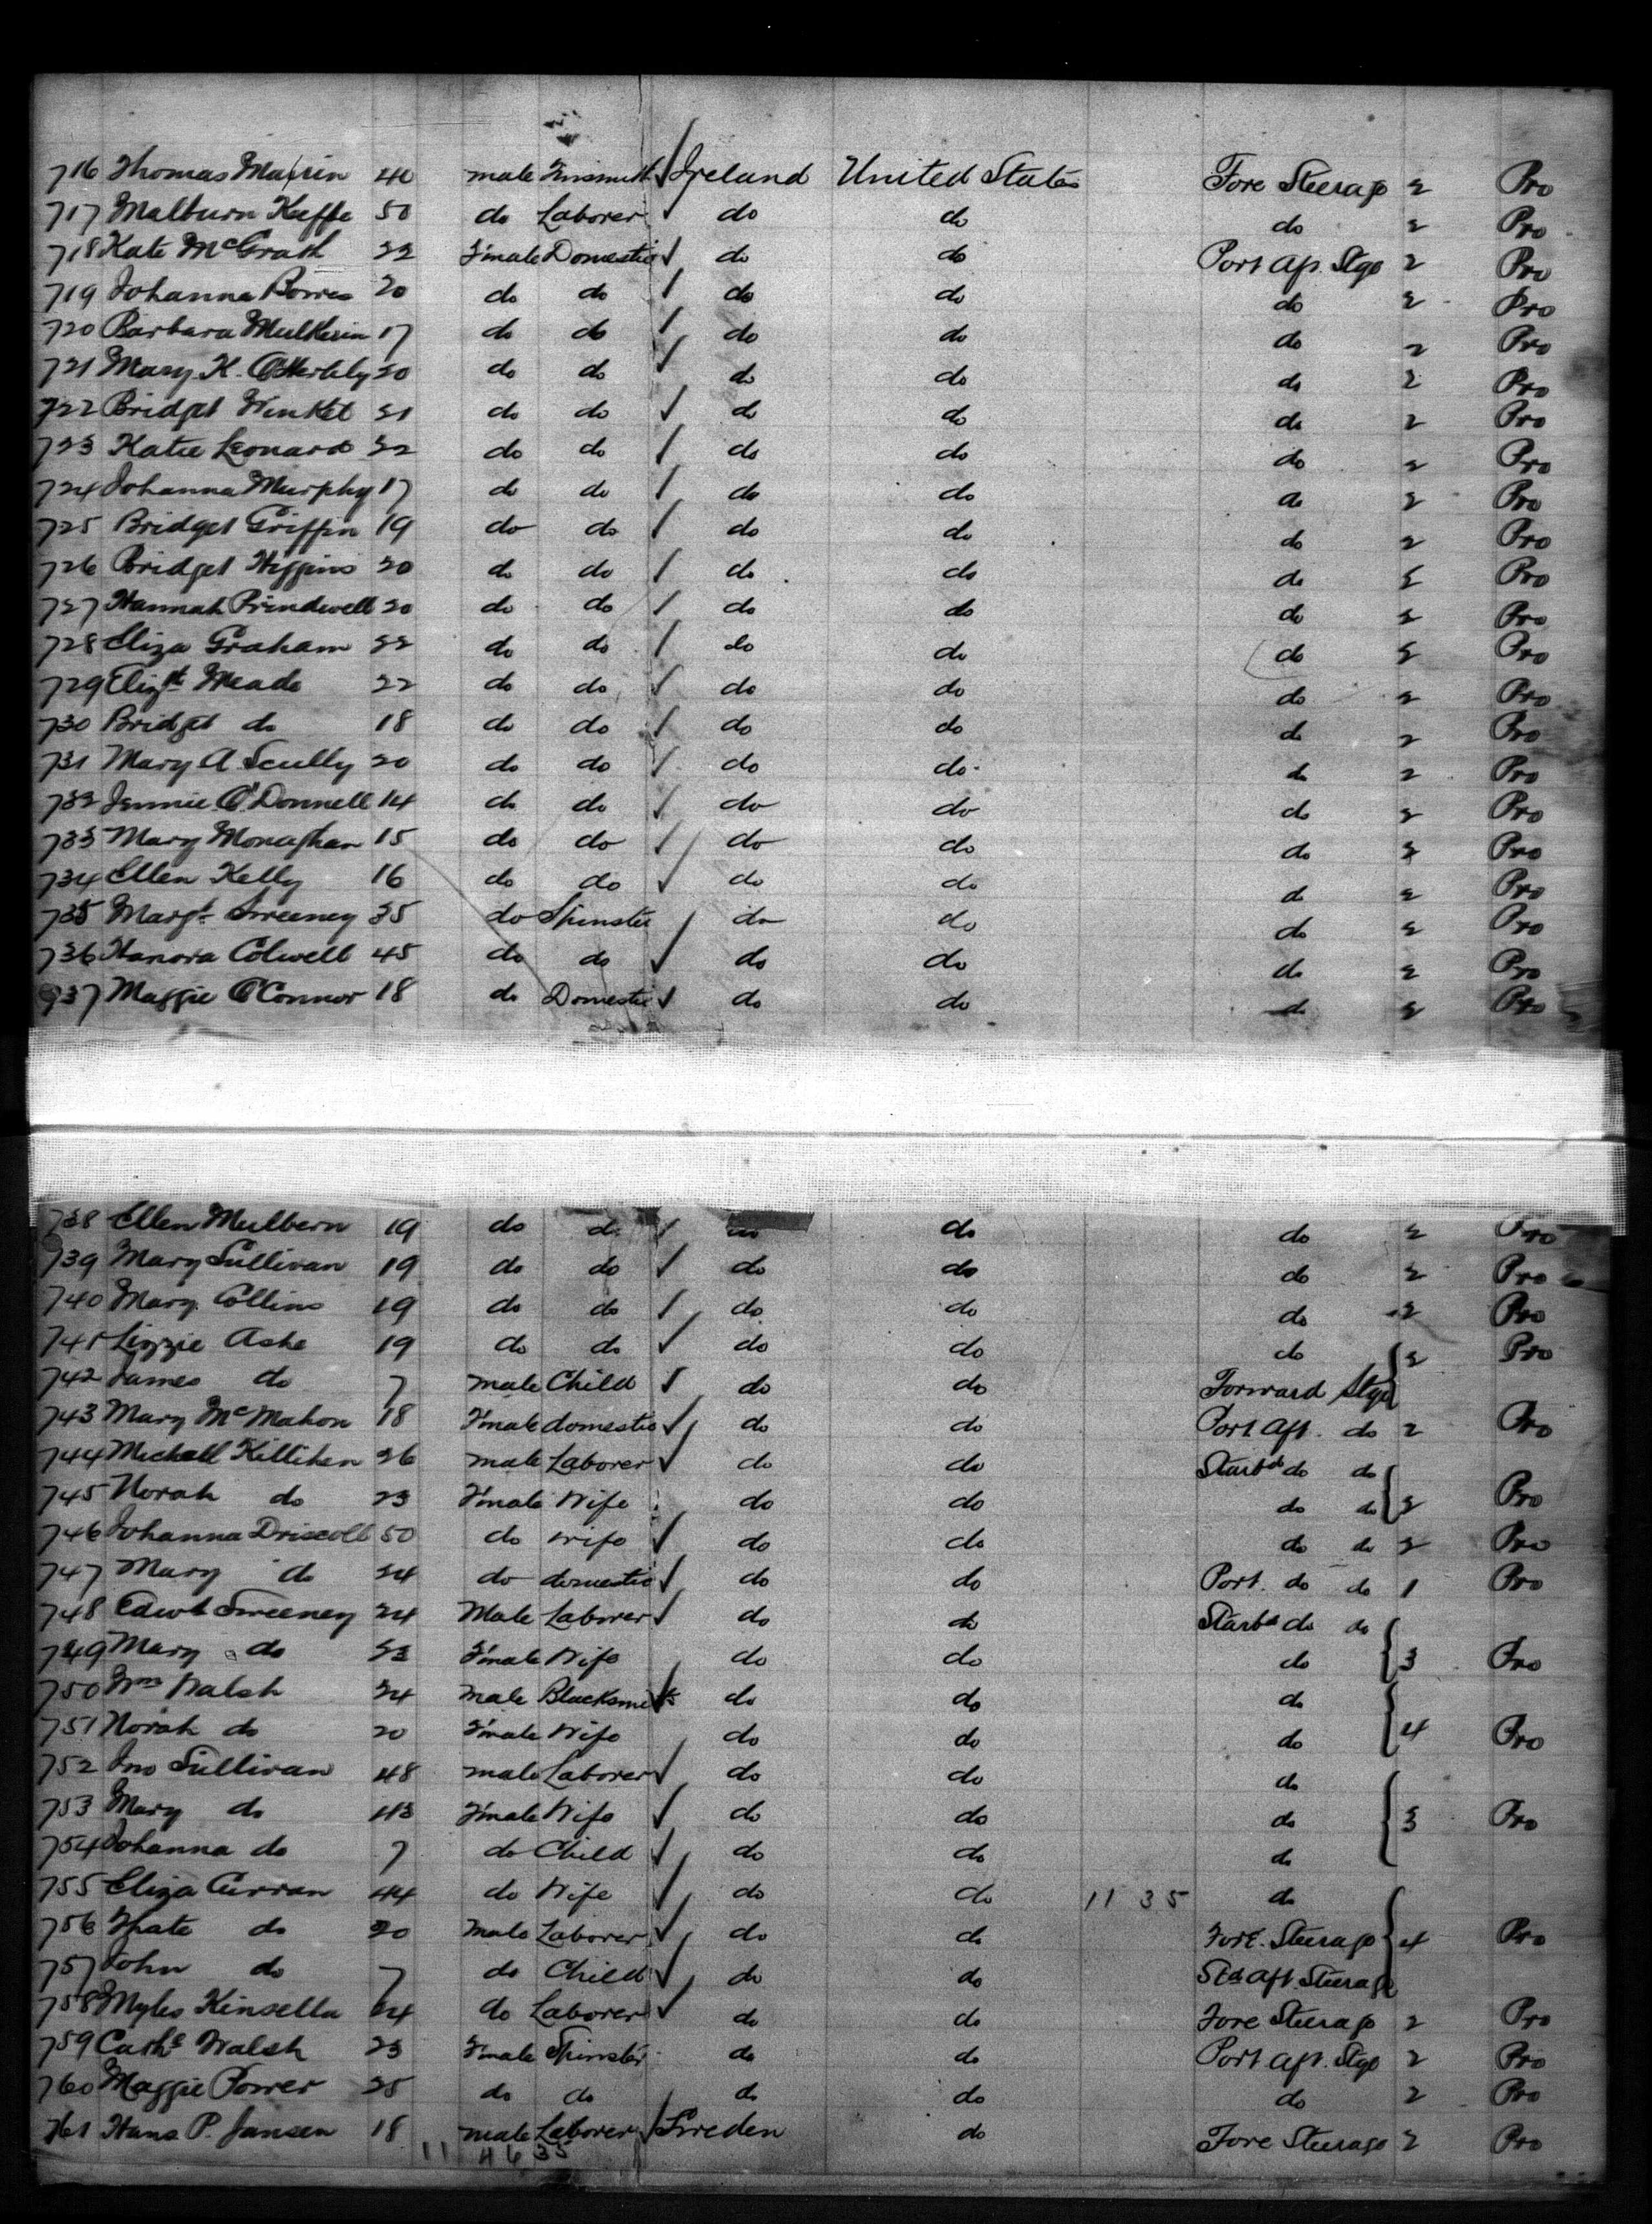 716 Thomas 40 male Tinsmith Ireland United States Fore Steerage 2 Pro
717 Malburn Keffe 50 do Laborer do do do 2 Pro
718 Kate McGrath 22 F'male Domestic do do Port Aft. Stge 2 Pro
719 Johanna 20 do do do do do 2 Pro
720 Barbara Mulkerin 17 do do do do do 2 Pro
721 Mary K. 20 do do do do do 2 Pro
722 Bridget 21 do do do do do 2 Pro
723 Katie Leonard 22 do do do do do 2 Pro
724 Johanna Murphy 17 do do do do do 2 Pro
725 Bridget Griffin 19 do do do do do 2 Pro
726 Bridget Higgins 20 do do do do do 2 Pro
727 Hannah Prindwell 20 do do do do do 2 Pro
728 Eliza Graham 22 do do do do do 2 Pro
729 Elizth Meade 22 do do do do do 2 Pro
730 Bridget do 18 do do do do do 2 Pro
731 Mary A Scully 20 do do do do do 2 Pro
732 Jennie O'Donnell 14 do do do do do 2 Pro
733 Mary Monaghan 15 do do do do do 2 Pro
734 Ellen Kelly 16 do do do do do 2 Pro
735 Margt Sweeney 35 do Spinster do do do 2 Pro
736 Hanora Colwell 45 do do do do do 2 Pro
737 Maggie O'Connor 18 do Domestic do do do 2 Pro
738 Ellen Mulbern 19 do do do do do 2 Pro
739 Mary Sullivan 19 do do do do do 2 Pro
740 Mary Collins 19 do do do do do 2 Pro
741 Lizzie Ashe 19 do do do do do 2 Pro
742 James do 7 male Child do do Forward Stge
743 Mary McMahon 18 F'male domestic do do Port Aft. do 2 Pro
744 Michall Killiken 26 male Laborer do do Starbd do do
745 Norah do 23 F'male Wife do do do do 2 Pro
746 Johanna Driscoll 50 do wife do do do do 2 Pro
747 Mary do 24 do domestic do do Port. do do 1 Pro
748 Edwd Sweeney 24 Male Laborer do do Starbd do do
749 Mary do 23 F'male Wife do do do 3 Pro
750 Wm Walsh 24 male Blacksmith do do do
751 Norah do 20 F'male Wife do do do 4 Pro
752 Jno Sullivan 48 male Laborer do do do
753 Mary do 43 F'male Wife do do do 3 Pro
754 Johanna do 7 do Child do do do
755 Eliza Curran 44 do Wife do do 11 35 do
756 do 20 Male Laborer do do Fore. Steerage 4 Pro
757 John do 7 do Child do do Stbd Aft Steerage
758 Myles Kinsella 24 do Laborer do do Fore Steerage 2 Pro
759 Cathe Walsh 23 F'male Spinster do do Port Aft. Stge 2 Pro
760 Maggie Power 25 do do do do do 2 Pro
761 Hans P. Jansen 18 male Laborer Sweden do Fore Steerage 2 Pro
11 4635